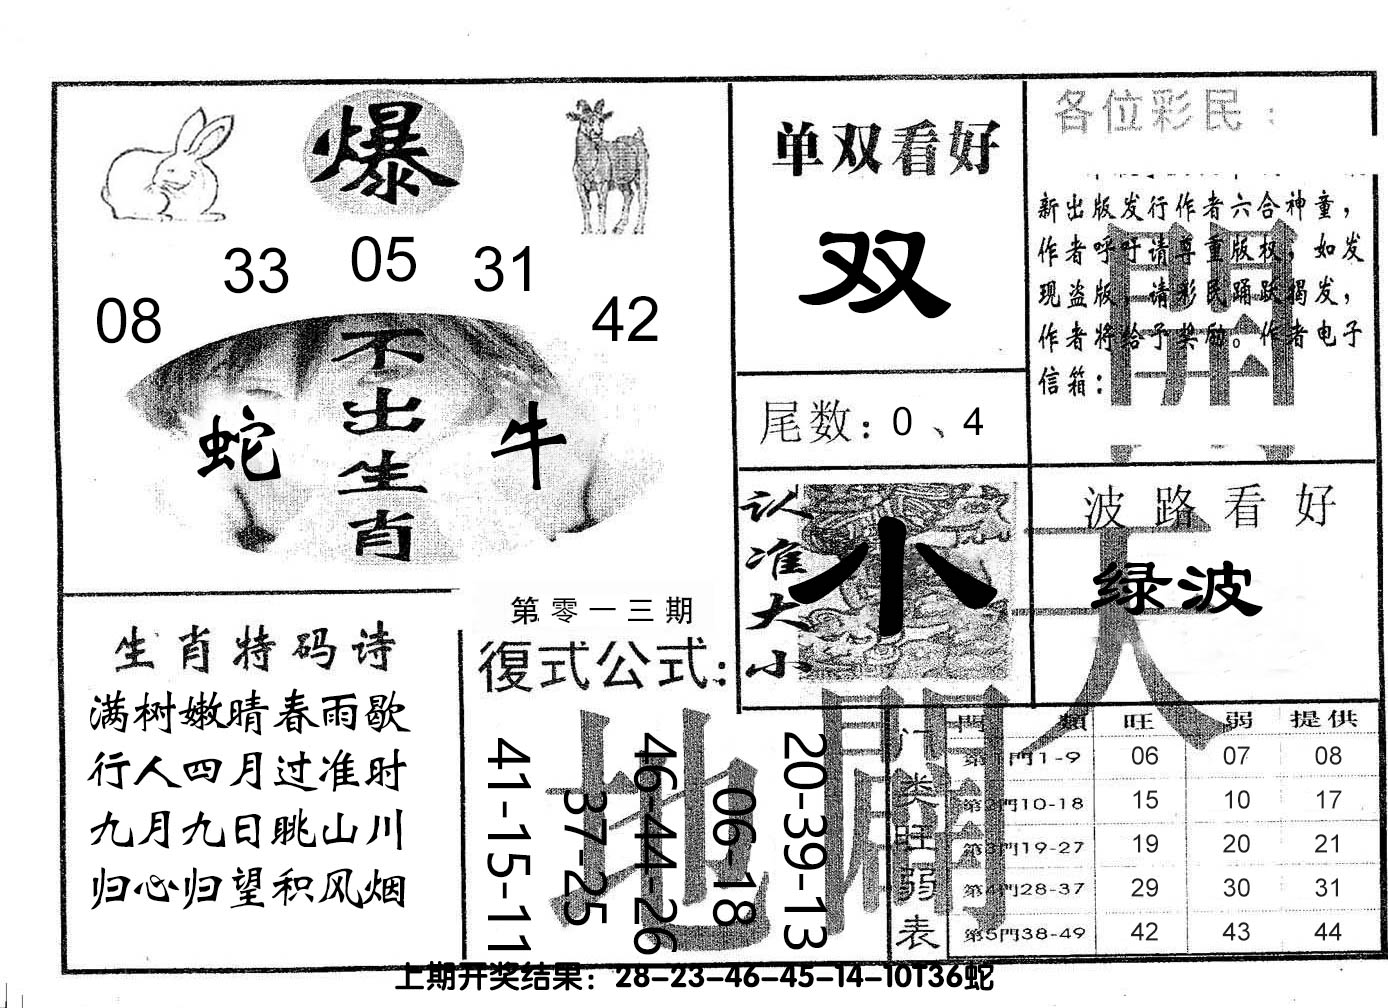 爆
33 05 31
08 42
不出生肖
蛇 牛
生肖特码诗
满树嫩晴春雨歇
行人四月过准时
九月九日眺山川
归心归望积风烟
第零一三期
復式公式：
41-15-11
37-25
46-44-26
06-18
20-39-13
单双看好
双
尾数：0、4
认准大小
小
各位彩民：
新出版发行作者六合神童，
作者呼吁请尊重版权，如发
现盗版，请彩民踊跃揭发，
作者将给予奖励。作者电子
信箱：
波路看好
绿波
天
地
開
門類 旺 弱 提供
门类旺弱表
第1門1-9 06 07 08
第2門10-18 15 10 17
第3門19-27 19 20 21
第4門28-37 29 30 31
第5門38-49 42 43 44
上期开奖结果：28-23-46-45-14-10T36蛇